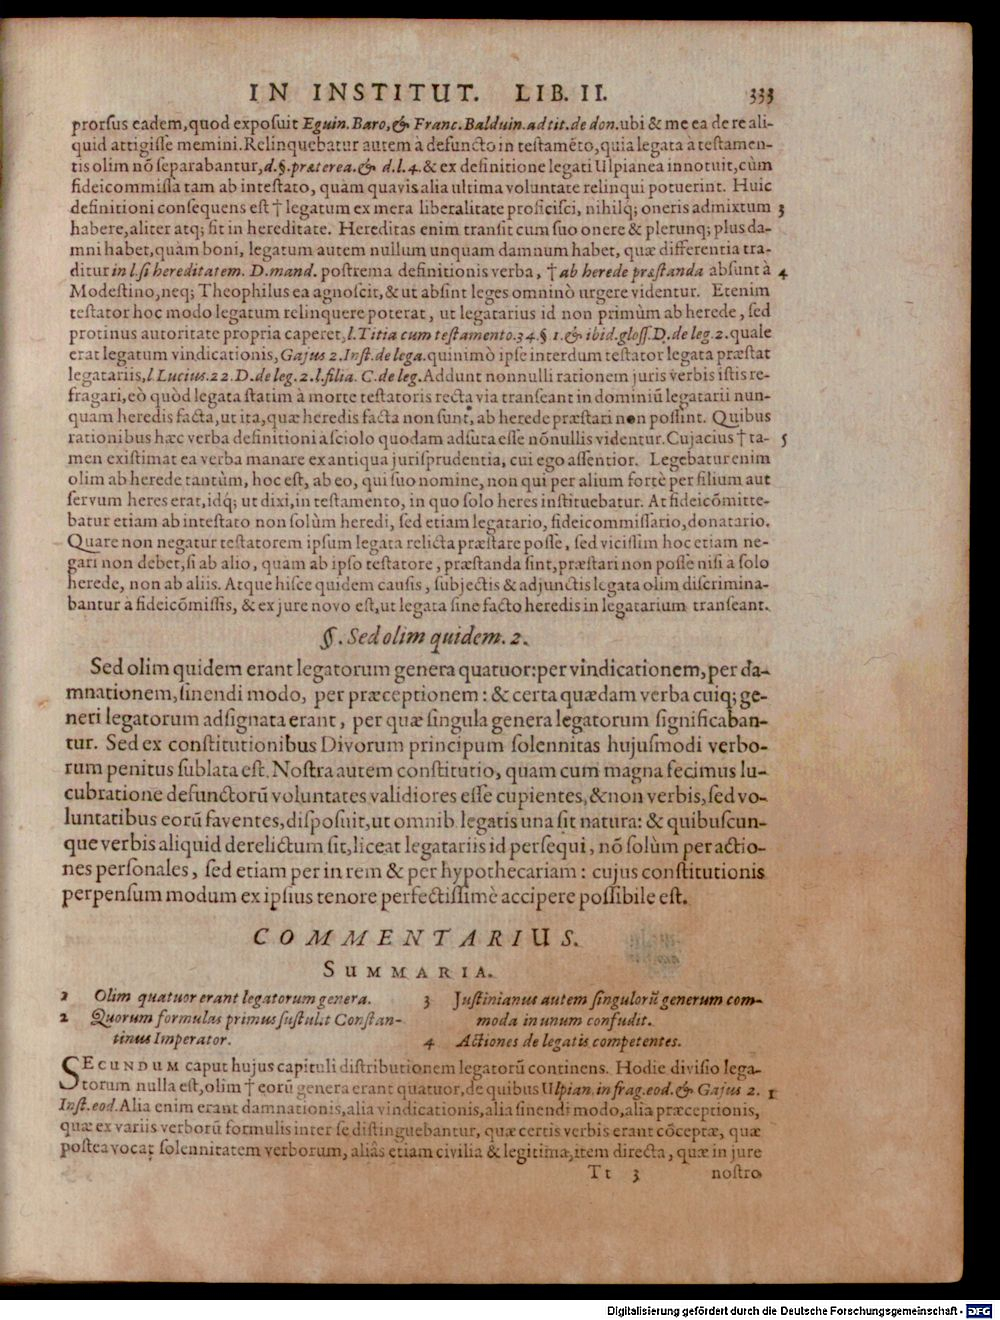 IN INSTITUT. LIB. II. 333
prorſus eadem, quod expoſuit Eguin. Baro, & Franc. Balduin. ad tit. de don. ubi & me ea de re ali-
quid attigiſſe memini. Relinquebatur autem à defuncto in teſtamẽto, quia legata à teſtamen-
tis olim nõ ſeparabantur, d. §. præterea. & d. l. 4. & ex definitione legati Ulpianea innotuit, cùm
fideicommiſſa tam ab inteſtato, quàm quavis alia ultima voluntate relinqui potuerint. Huic
definitioni conſequens eſt † legatum ex mera liberalitate proficiſci, nihilq; oneris admixtum 3
habere, aliter atq; fit in hereditate. Hereditas enim tranſit cum ſuo onere & plerunq; plus da-
mni habet, quàm boni, legatum autem nullum unquam damnum habet, quæ differentia tra-
ditur in l. ſi hereditatem. D. mand. poſtrema definitionis verba, † ab herede præſtanda abſunt à 4
Modeſtino, neq; Theophilus ea agnoſcit, & ut abſint leges omninò urgere videntur. Etenim
teſtator hoc modo legatum relinquere poterat, ut legatarius id non primùm ab herede, ſed
protinus autoritate propria caperet, l. Titia cum teſtamento. 34. § 1. & ibid. gloſſ. D. de leg. 2. quale
erat legatum vindicationis, Gajus 2. Inſt. de lega. quinimò ipſe interdum teſtator legata præſtat
legatariis, l Lucius. 22. D. de leg. 2. l. filia. C. de leg. Addunt nonnulli rationem juris verbis iſtis re-
fragari, eò quòd legata ſtatim à morte teſtatoris recta via tranſeant in dominiũ legatarii nun-
quam heredis facta, ut ita, quæ heredis facta non ſunt, ab herede præſtari non poſſint. Quibus
rationibus hæc verba definitioni aſciolo quodam adſuta eſſe nõnullis videntur. Cujacius † ta- 5
men exiſtimat ea verba manare ex antiqua juriſprudentia, cui ego aſſentior. Legebatur enim
olim ab herede tantùm, hoc eſt, ab eo, qui ſuo nomine, non qui per alium fortè per filium aut
ſervum heres erat, idq; ut dixi, in teſtamento, in quo ſolo heres inſtituebatur. At fideicõmitte-
batur etiam ab inteſtato non ſolùm heredi, ſed etiam legatario, fideicommiſſario, donatario.
Quare non negatur teſtatorem ipſum legata relicta præſtare poſſe, ſed viciſſim hoc etiam ne-
gari non debet, ſi ab alio, quàm ab ipſo teſtatore, præſtanda ſint, præſtari non poſſe niſi à ſolo
herede, non ab aliis. Atque hiſce quidem cauſis, ſubjectis & adjunctis legata olim diſcrimina-
bantur à fideicõmiſſis, & ex jure novo eſt, ut legata ſine facto heredis in legatarium tranſeant.
§. Sed olim quidem. 2.
Sed olim quidem erant legatorum genera quatuor: per vindicationem, per da-
mnationem, ſinendi modo, per præceptionem: & certa quædam verba cuiq; ge-
neri legatorum adſignata erant, per quæ ſingula genera legatorum ſignificaban-
tur. Sed ex conſtitutionibus Divorum principum ſolennitas hujuſmodi verbo-
rum penitus ſublata eſt. Noſtra autem conſtitutio, quam cum magna fecimus lu-
cubratione defunctorũ voluntates validiores eſſe cupientes, & non verbis, ſed vo-
luntatibus eorũ faventes, diſpoſuit, ut omnib legatis una ſit natura: & quibuſcun-
que verbis aliquid derelictum ſit, liceat legatariis id perſequi, nõ ſolùm per actio-
nes perſonales, ſed etiam per in rem & per hypothecariam: cujus conſtitutionis
perpenſum modum ex ipſius tenore perfectiſſimè accipere poſſibile eſt.
COMMENTARIUS.
SUMMARIA.
1 Olim quatuor erant legatorum genera.
2 Quorum formulas primus ſuſtulit Conſtan-
tinus Imperator.
3 Juſtinianus autem ſingulorũ generum com-
moda in unum confudit.
4 Actiones de legatis competentes.
SECUNDUM caput hujus capituli diſtributionem legatorũ continens. Hodie diviſio lega-
torum nulla eſt, olim † eorũ genera erant quatuor, de quibus Ulpian. in frag. eod. & Gajus 2. 1
Inſt. eod. Alia enim erant damnationis, alia vindicationis, alia ſinendi modo, alia præceptionis,
quæ ex variis verborũ formulis inter ſe diſtinguebantur, quæ certis verbis erant cõceptæ, quæ
poſtea vocat ſolennitatem verborum, aliâs etiam civilia & legitima, item directa, quæ in jure
Tt 3 noſtro
Digitalisierung gefördert durch die Deutsche Forschungsgemeinschaft - DFG